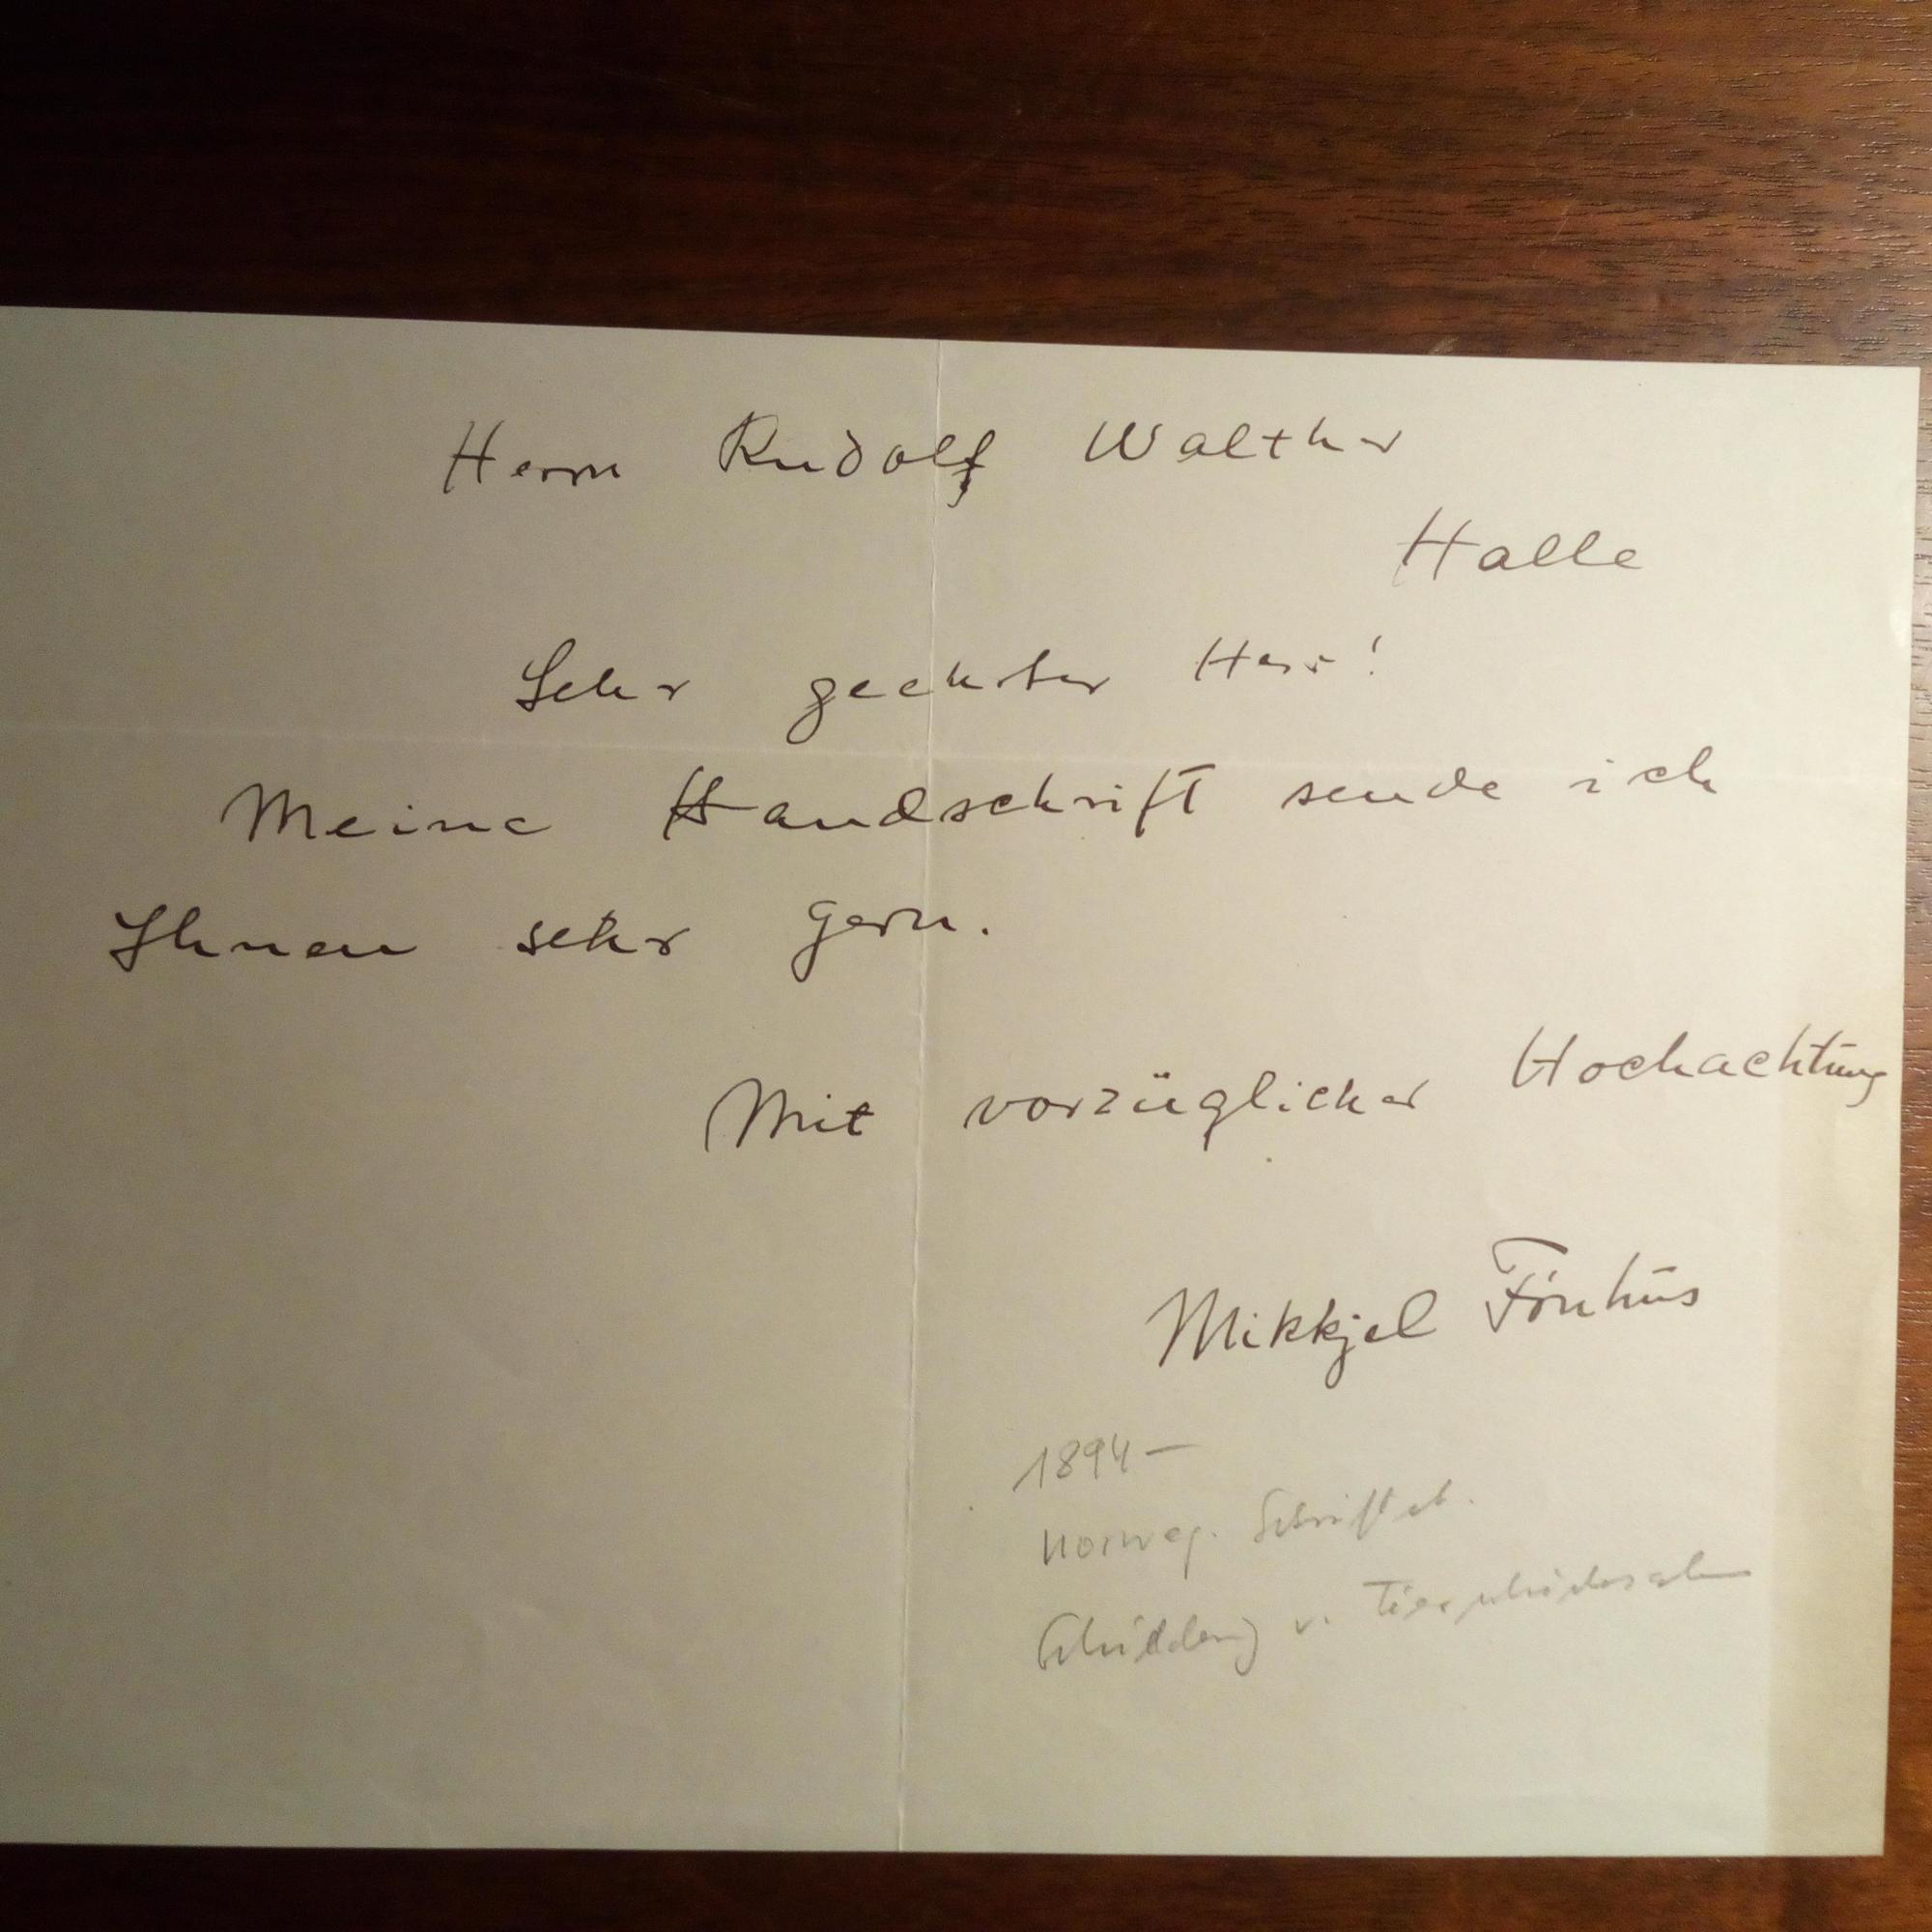 Herrn Rudolf Walther
Halle
Sehr geehrter Herr!
Meine Handschrift sende ich
Ihnen sehr gern.
Mit vorzüglicher Hochachtung
Mikkjel Fönhus
1894 –
Norweg. Schriftst.
Schilderung v. Tierschicksalen